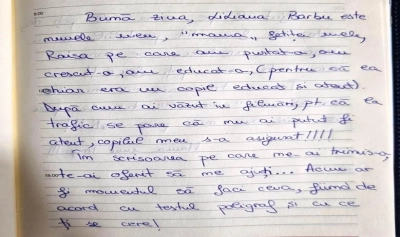 8:00
Bună ziua, Lidiana Barbu este
numele meu, "mama" fetiței mele,
Raisa pe care am purtat-o, am
crescut-o, am educat-o, (pentru că ea
chiar era un copil educat și atent).
După cum ai văzut în filmări, pt. că la
trafic se pare că nu ai putut fi
atent, copilul meu s-a asigurat!!!!
Îm scrisoarea pe care mi-ai trimis-o,
te-ai oferit să mă ajuți... Acum ar
fi momentul să faci ceva, fiind de
acord cu testul poligraf și cu ce
ți se cere!